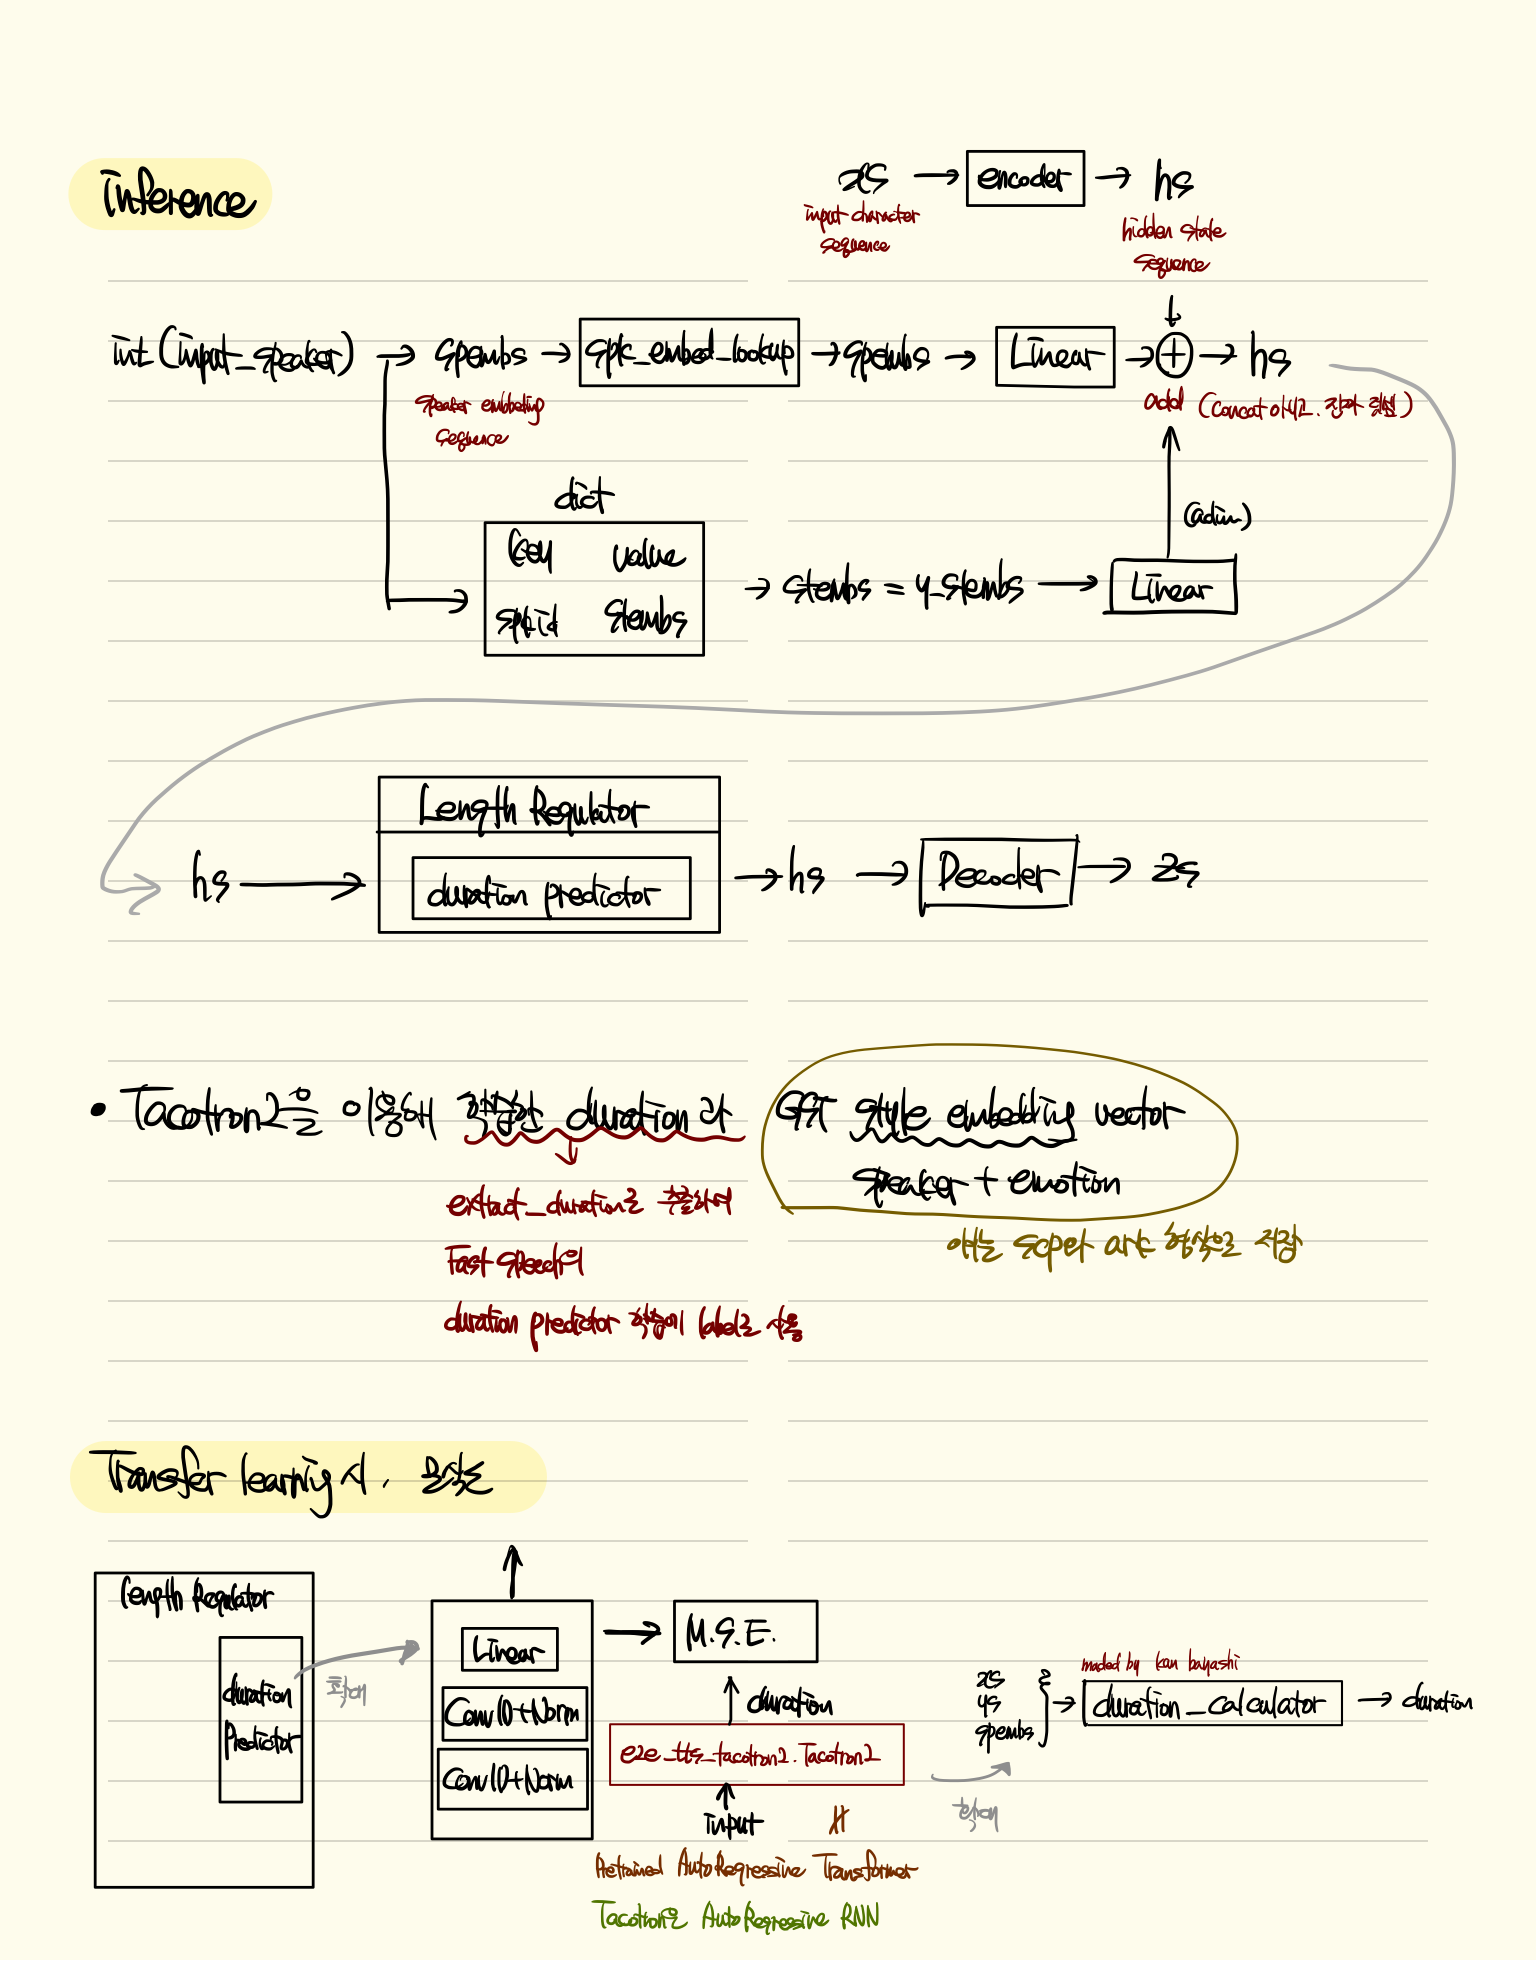 inference
xs → encoder → hs
input character
sequence
hidden state
sequence
int(input_speaker) → spembs → spk_embed_lookup → spembs → Linear → + → hs
speaker embbeding
sequence
add (concat 아니고.
dict
key value
spkid stembs
→ stembs = y_stembs → Linear
(adim)
Length Regulator
duration predictor
hs → hs → Decoder → zs
• Tacotron2을 이용해 학습한 duration과 GST style embedding vector
speaker + emotion
extract_duration로 추출하여
Fast speech의
duration predictor 학습에 label로 사용
이는 scp와 ark 형식으로 저장
Transfer learnig 시.
Length Regulator
duration
Predictor
확대
Linear
Conv1D+Norm
Conv1D+Norm
→ M.S.E.
duration
e2e_tts_tacotron2.Tacotron2
input
Pretrained AutoRegressive Transformer
Tacotron은 AutoRegressive RNN
xs
ys
spembs
maded by kan bayashi
duration_calculator → duration
확대